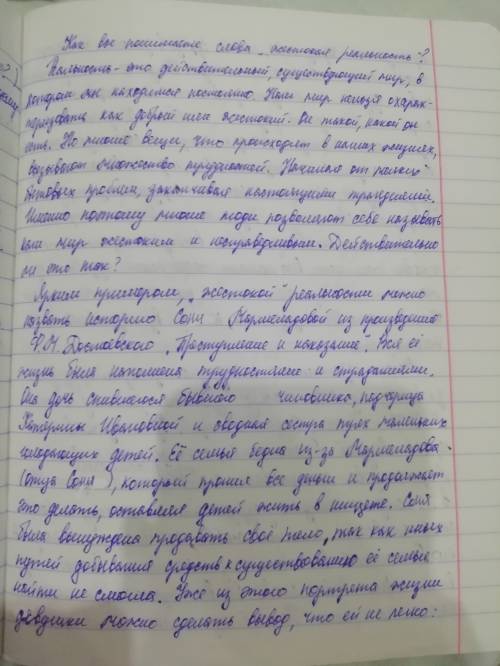 Как вы понимаете слова „жестокая реальность"?
Реальность - это действительный, существующий мир, в
котором мы находимся постоянно. Наш мир нельзя охарак-
теризовать как добрый или жестокий. Он такой, какой он
есть. Но многие вещи, что происходят в наших жизнях,
вызывают множество трудностей. Начиная от
бытовых проблем, заканчивая настоящими трагедиями.
Именно поэтому многие люди позволяют себе называть
наш мир жестоким и несправедливым. Действительно
ли это так?
Ярким примером, „жестокой" реальности можно
назвать историю Сони Мармеладовой из произведения
Ф.М. Достоевского „Преступление и наказание". Вся её
жизнь была наполнена трудностями и страданиями.
Она дочь спившегося бывшего чиновника, падчерица
Катерины Ивановной и сводная сестра трёх маленьких
голодающих детей. Её семья бедна из-за Мармеладова
(отца Сони), который пропил все деньги и продолжает
это делать, оставляя детей жить в нищете. Соня
была вынуждена продавать своё тело, так как иных
путей добывания средств к существованию её семья
найти не смогла. Уже из этого портрета жизни
девушки можно сделать вывод, что ей не легко: